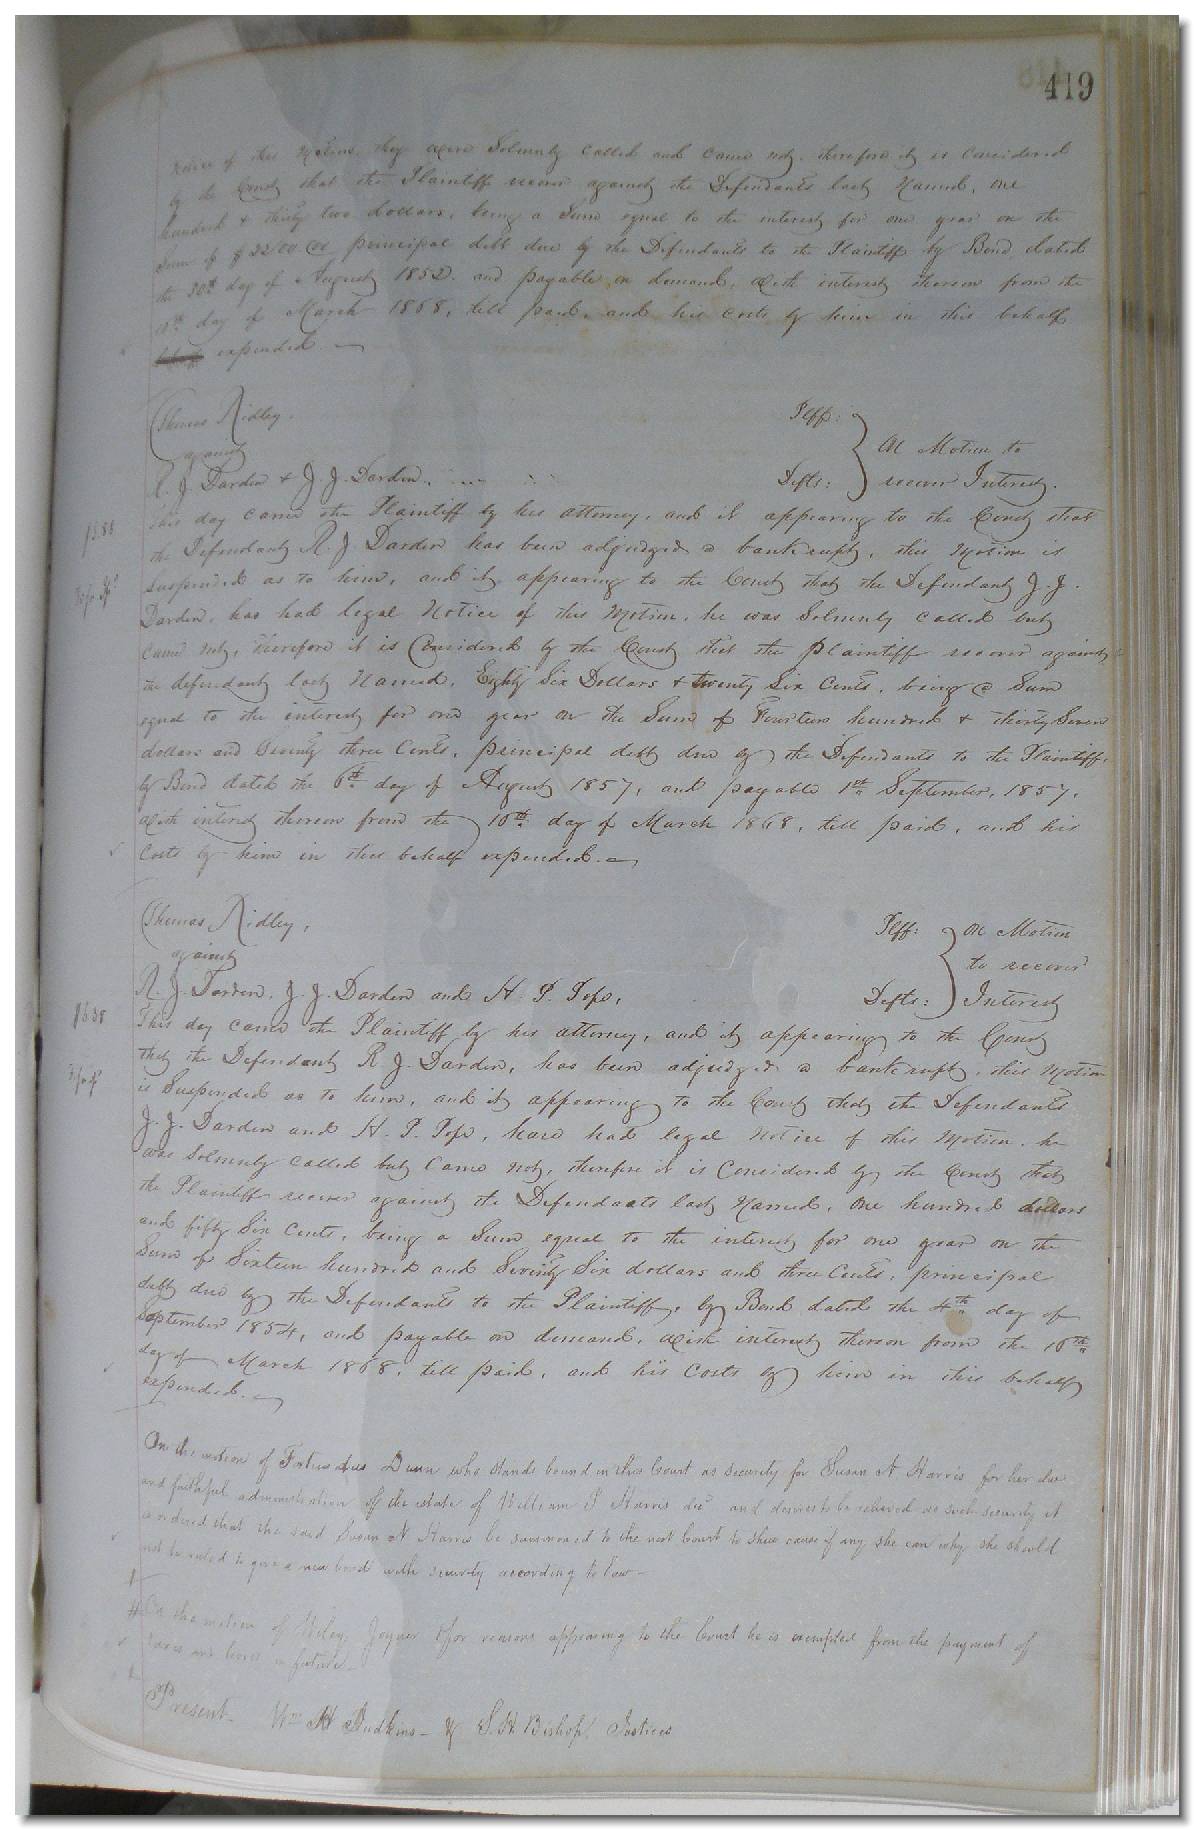 419
notice of this Motion, they were Solemnly called and came not, therefore it is Considered
by the Court that the Plaintiff recover against the Defendants last Named, one
hundred & thirty two dollars, being a Sum equal to the interest for one year on the
Sum of $2200 principal debt due by the Defendants to the Plaintiff by Bond dated
the 30th day of August 1852. and payable on demand, with interest thereon from the
10th day of March 1868, till paid, and his costs by him in this behalf
expended.
Thomas Ridley. Plff:
against On Motion to
R. J. Darden & J. J. Darden. Defts: recover Interest.
This day came the Plaintiff by his attorney, and it appearing to the Court that
the Defendant R. J. Darden has been adjudged a bankrupt, this Motion is
Suspended as to him, and it appearing to the Court that the Defendant J. J.
Darden, has had legal Notice of this Motion, he was Solemnly called but
came not, therefore it is Considered by the Court that the Plaintiff recover against
the defendant last Named, Eighty Six Dollars & twenty Six Cents, being a Sum
equal to the interest for one year on the Sum of Fourteen hundred & thirty Seven
dollars and Seventy three Cents, principal debt due by the Defendants to the Plaintiff,
by Bond dated the 6th day of August 1857, and payable 1st September, 1857,
with interest thereon from the 10th day of March 1868, till paid, and his
Costs by him in this behalf expended.
Thomas Ridley, Plff: On Motion
against to recover
R. J. Darden, J. J. Darden and H. P. Pope, Defts: Interest
This day came the Plaintiff by his attorney, and it appearing to the Court
that the Defendant R. J. Darden, has been adjudged a bankrupt, this Motion
is Suspended as to him, and it appearing to the Court that the Defendants
J. J. Darden and H. P. Pope, have had legal Notice of this Motion, he
was Solemnly called but Came not, therefore it is Considered by the Court that
the Plaintiff recover against the Defendants last Named, one hundred dollars
and fifty Six Cents, being a Sum equal to the interest for one year on the
Sum of Sixteen hundred and Seventy Six dollars and three Cents, principal
debt due by the Defendants to the Plaintiff, by Bond dated the 4th day of
September 1854, and payable on demand, with interest thereon from the 10th
day of March 1868, till paid, and his Costs by him in this behalf
expended.
On the motion of Dunn who stands bound in this Court as security for Susan N Harris for her due
and faithful administration of the estate of William P Harris decd and desires to be relieved as such security it
is ordered that the said Susan N Harris be summoned to the next Court to shew cause if any she can why she should
not be ruled to give a new bond with security according to law -
On the motion of Wiley Joyner & for reasons appearing to the Court he is exempted from the payment of
taxes and levies in future -
Present - Wm H Judkins - & S. H Bishop, Justices